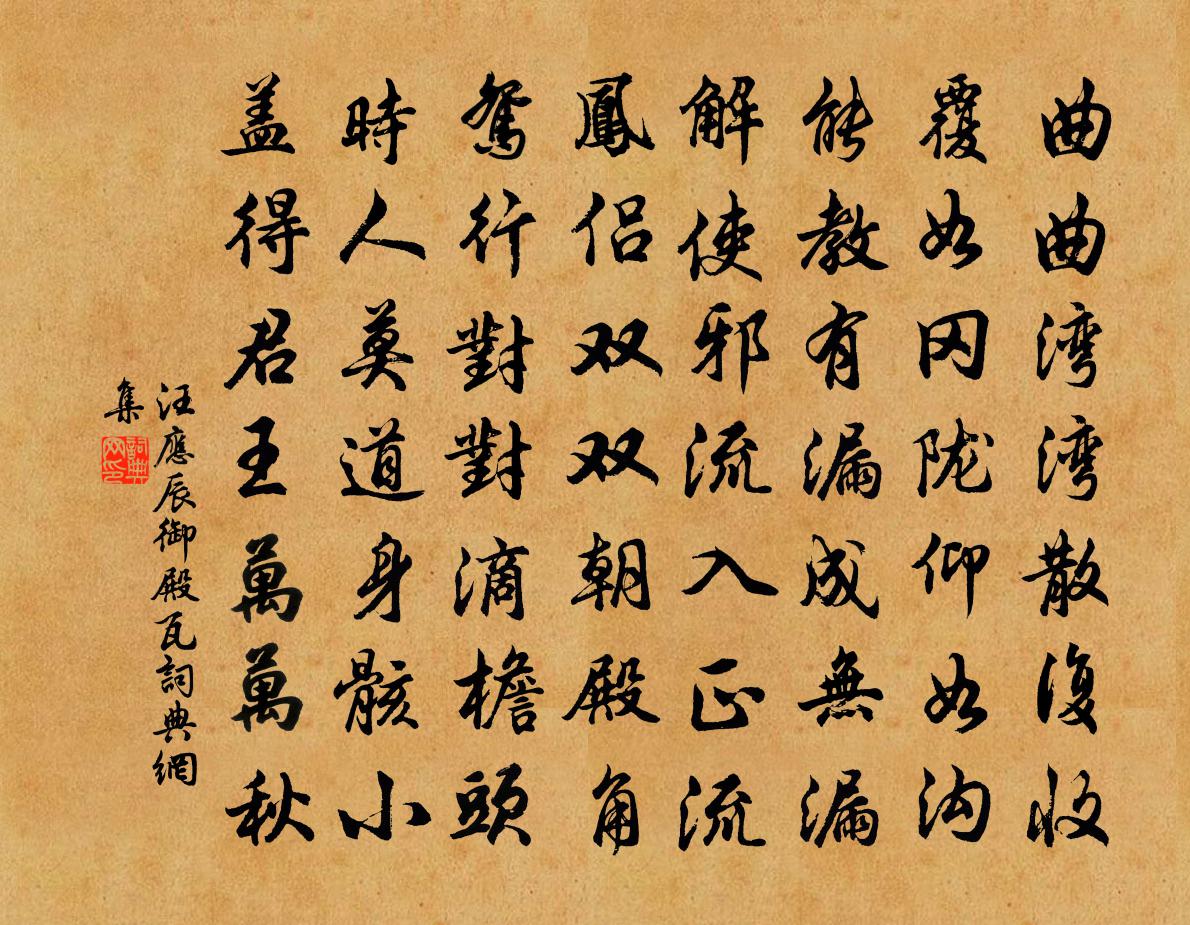 曲曲湾湾散復收
覆如冈陇仰如沟
能教有漏成無漏
解使邪流入正流
鳳侣双双朝殿角
鴛行對對滴檐頭
時人莫道身骸小
盖得君王萬萬秋
汪應辰御殿瓦詞典網
集
詞典网印